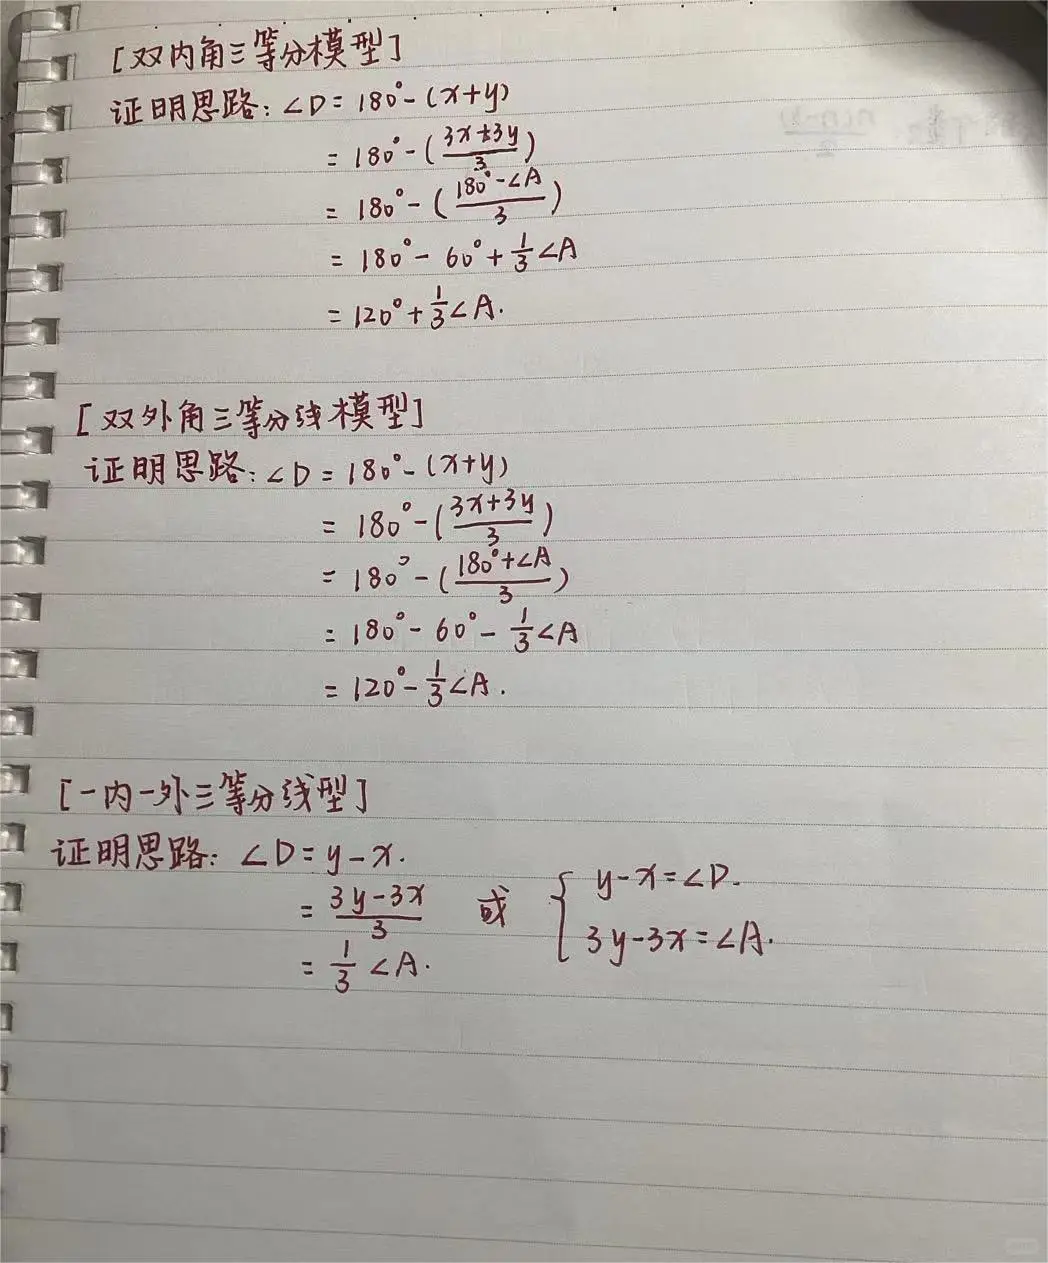 [双内角三等分模型]
证明思路: ∠D = 180° - (x+y)
= 180° - (\frac{3x+3y}{3})
= 180° - (\frac{180°-∠A}{3})
= 180° - 60° + \frac{1}{3}∠A
= 120° + \frac{1}{3}∠A.
[双外角三等分线模型]
证明思路: ∠D = 180° - (x+y)
= 180° - (\frac{3x+3y}{3})
= 180° - (\frac{180°+∠A}{3})
= 180° - 60° - \frac{1}{3}∠A
= 120° - \frac{1}{3}∠A.
[一内一外三等分线型]
证明思路: ∠D = y - x.
= \frac{3y-3x}{3} 或 { y - x = ∠D.
3y - 3x = ∠A.
= \frac{1}{3}∠A.